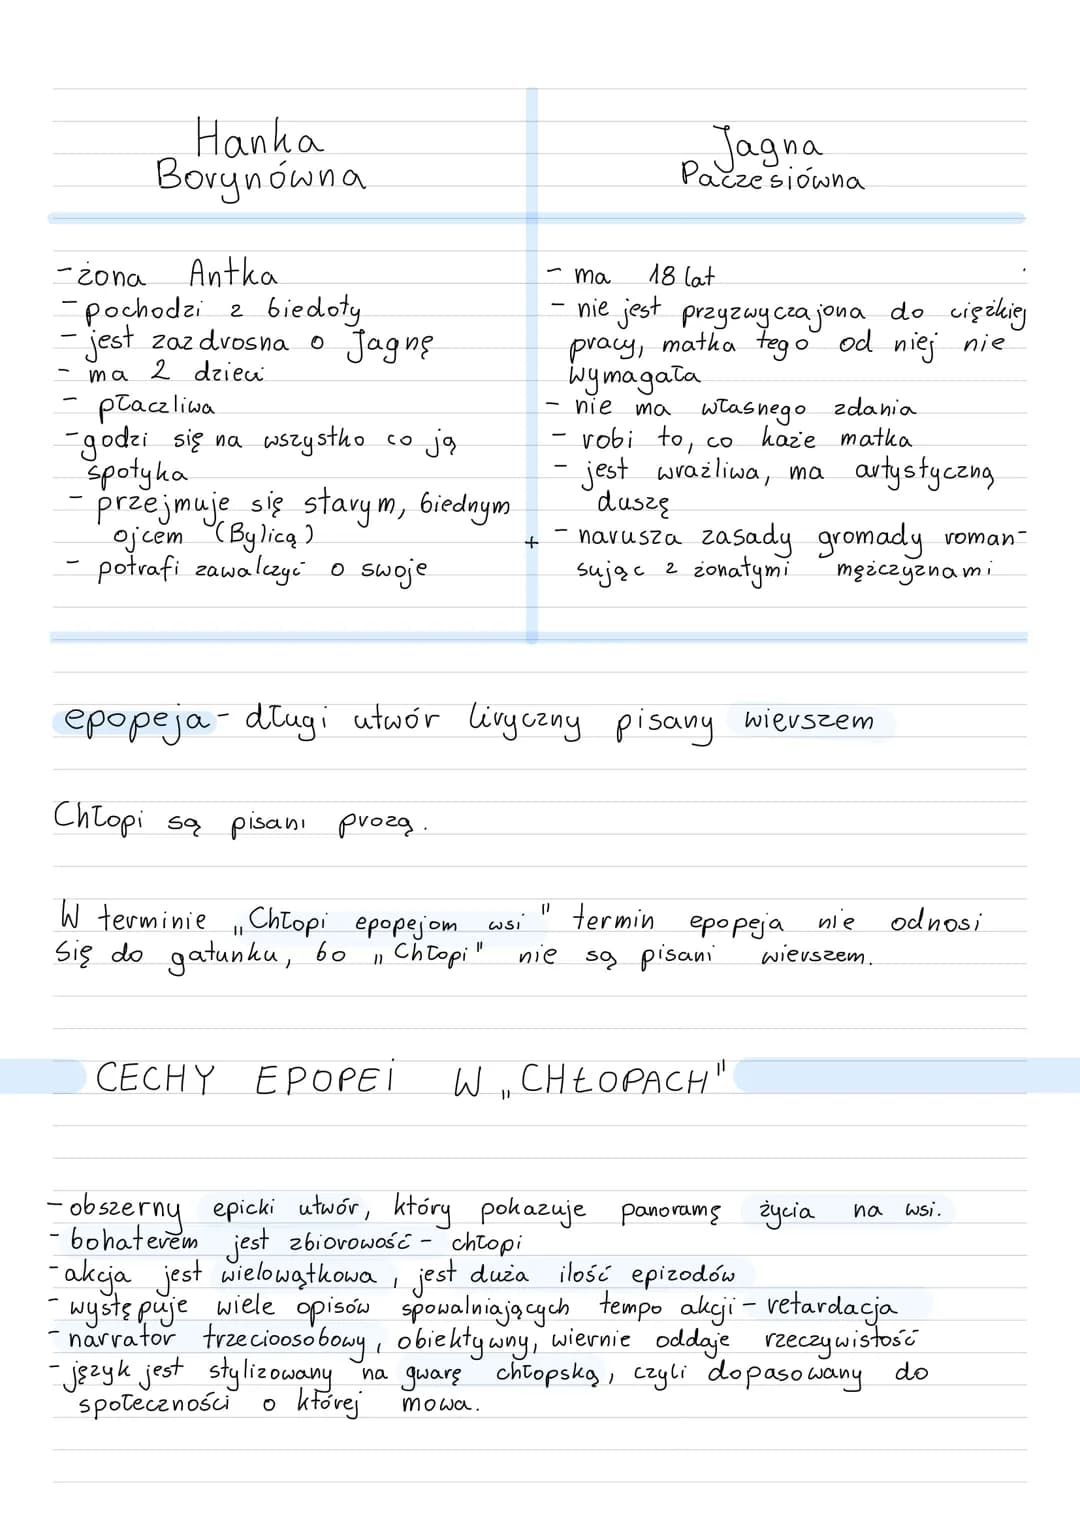 Hanka
Borynówna
- żona Antka
- pochodzi z biedoty
- jest zazdrosna o Jagnę
- ma 2 dzieci
- płaczliwa
- godzi się na wszystko co ją
spotyka
- przejmuje się starym, biednym
ojcem (Bylicą)
- potrafi zawalczyć o swoje
Jagna
Paczesiówna
- ma 18 lat
- nie jest przyzwyczajona do ciężkiej
pracy, matka tego od niej nie
wymagała
- nie ma własnego zdania
- robi to, co każe matka
- jest wrażliwa, ma artystyczną
duszę
+ - narusza zasady gromady roman-
sując z żonatymi mężczyznami
epopeja - długi utwór liryczny pisany wierszem
Chłopi są pisani prozą.
W terminie „Chłopi epopejom wsi" termin epopeja nie odnosi
się do gatunku, bo „Chłopi" nie są pisani wierszem.
CECHY EPOPEI W „CHŁOPACH"
- obszerny epicki utwór, który pokazuje panoramę życia na wsi.
- bohaterem jest zbiorowość - chłopi
- akcja jest wielowątkowa, jest duża ilość epizodów
- występuje wiele opisów spowalniających tempo akcji - retardacja
- narrator trzecioosobowy, obiektywny, wiernie oddaje rzeczywistość
- język jest stylizowany na gwarę chłopską, czyli dopasowany do
społeczności o której mowa.